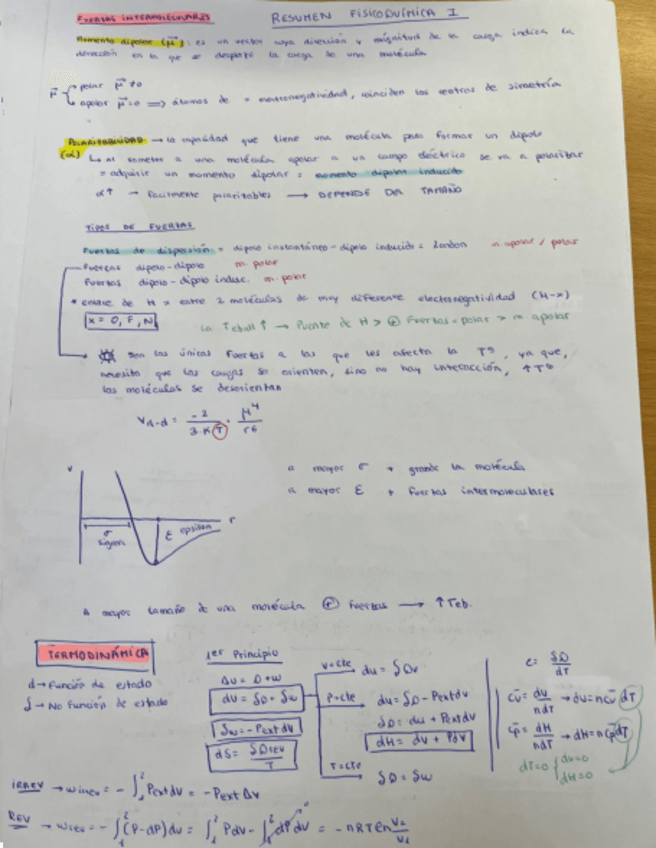 FUERZAS INTERMOLECULARES
RESUMEN FISICOQUÍMICA I
Momento dipolar (μ⃗): es un vector cuya dirección y magnitud de la carga indica la
dirección en la que se desplaza la carga de una molécula
μ⃗ polar μ⃗ ≠ 0
apolar μ⃗ = 0 ⟹ átomos de = electronegatividad, coinciden los centros de simetría
POLARIZABILIDAD → la capacidad que tiene una molécula para formar un dipolo
(α) ↳ al someter a una molécula apolar a un campo eléctrico se va a polarizar
= adquirir un momento dipolar = momento dipolar inducido
α↑ → facilmente polarizables → DEPENDE DEL TAMAÑO
TIPOS DE FUERZAS
Fuerzas de dispersión = dipolo instantáneo-dipolo inducido = London m. apolar / polar
Fuerzas dipolo-dipolo m. polar
Fuerzas dipolo-dipolo induc. m. polar
* enlace de H > entre 2 moléculas de muy diferente electronegatividad (H-x)
x = O, F, N
La Tebull ↑ → Puente de H > ⊕ Fuerzas = polar > m. apolar
Son las únicas fuerzas a las que les afecta la Tª, ya que,
necesita que las cargas se orienten, sino no hay interacción, ↑Tª
las moléculas se desorientan
V d-d = -2 / 3·K T · μ⁴ / r6
V
r
σ
sigma
ε epsilon
a mayor σ + grande la molécula
a mayor ε + fuerzas intermoleculares
A mayor tamaño de una molécula ⊕ fuerzas → ↑Teb.
TERMODINÁMICA
d → Función de estado
∫ → No función de estado
1er Principio
ΔU = Q + W
dU = δQ + δW
δW = -PextdV
dS = δQREV / T
V=cte du = δQv
P=cte du = δQ - Pextdv
δQ = du + Pextdv
dH = dU + PdV
T=cte δQ = δW
c = δQ / dT
cv̄ = du / ndT → du = ncv̄ dT
cp̄ = dH / ndT → dH = ncp̄ dT
dT=0 { du=0
dH=0
IRREV → Wirrev = - ∫₁² Pext dv = -Pext Δv
REV → Wrev = - ∫₁² (P-dP)dv = ∫₁² Pdv - ∫₁² dP dv = -nRT ln v₂/v₁